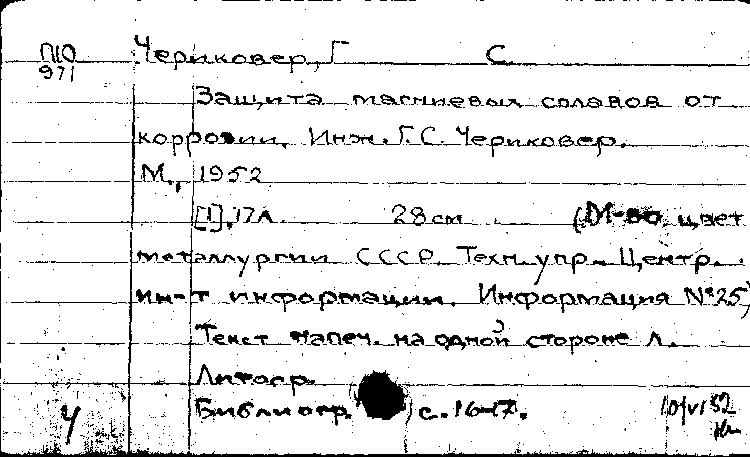 П10 Чериковер, Г С.
971
Защита магниевых сплавов от
коррозии. Инж. Г.С. Чериковер.
М., 1952
[1], 17л. 28 см (М-во цвет
металлургии СССР. Техн. упр. Центр.
ин-т информации. Информация №25)
Текст напеч. на одной стороне л.
Литогр.
Библиогр. с. 16-17.
10/VI 52
У